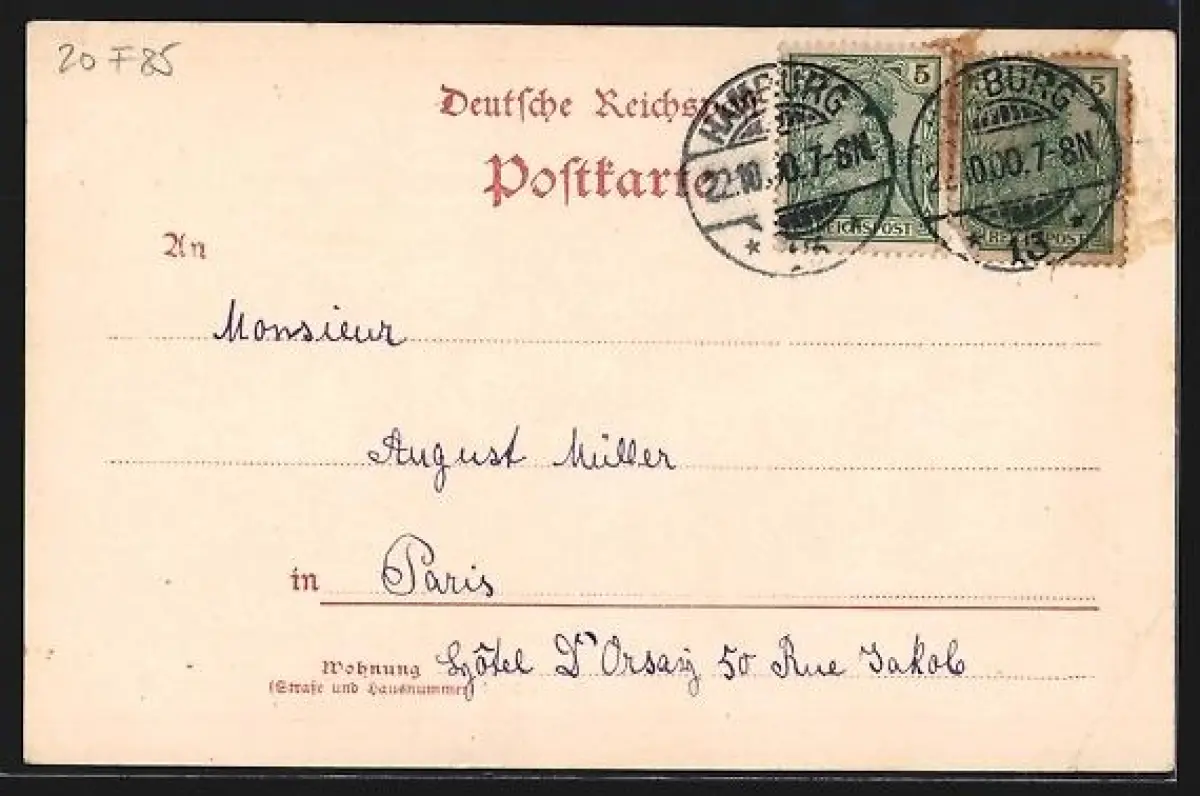 20 F 85
Deutsche Reichspost
Postkarte
HAMBURG
22.10.00.7-8N.
5
REICHSPOST
BURG
10.00.7-8N
* 13 *
5
REICHSPOST
An
Monsieur
August Müller
in Paris
Wohnung Hôtel D'Orsay 50 Rue Jakob
(Straße und Hausnummer)